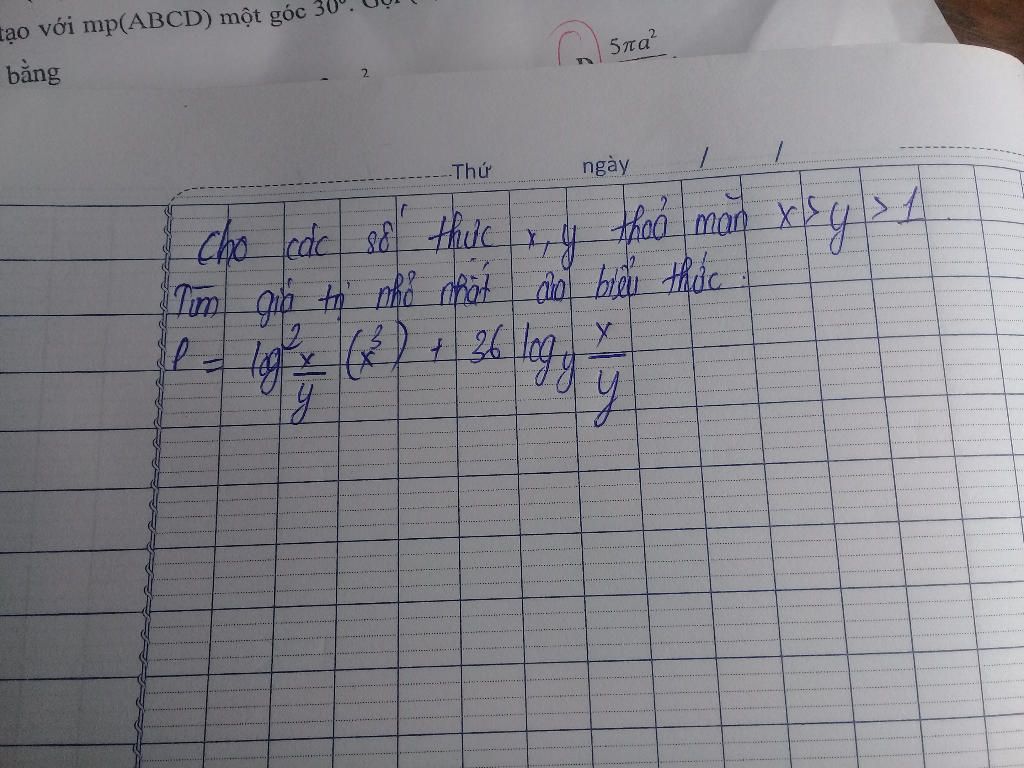 tạo với mp(ABCD) một góc 30°. Gọi
bằng
5πa²
Thứ ngày / /
Cho các số thực x, y thoả mãn x > y > 1
Tìm giá trị nhỏ nhất của biểu thức:
P = log²_{x/y} (x³) + 36 log_y x/y